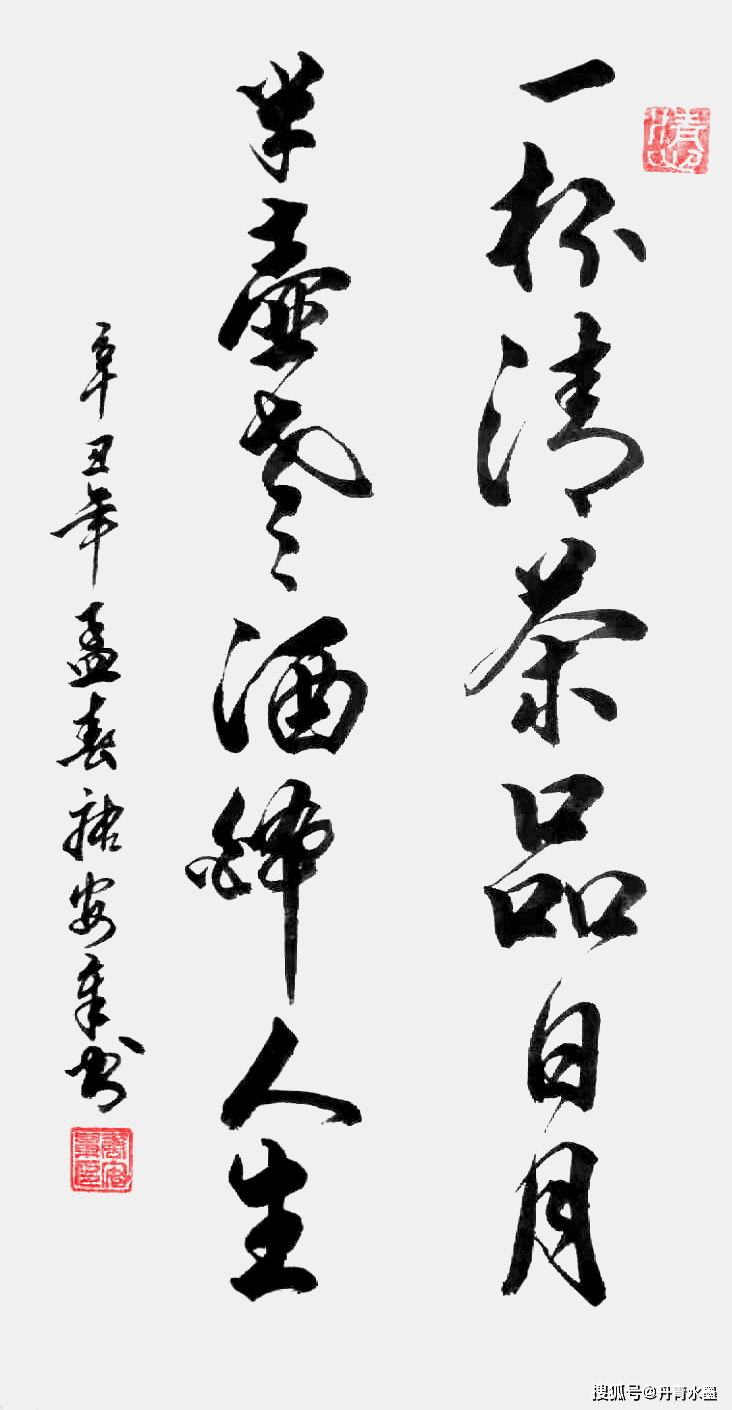 一杯清茶品日月
半壺老酒醉人生
辛丑年孟春安章书
搜狐号@丹青水墨